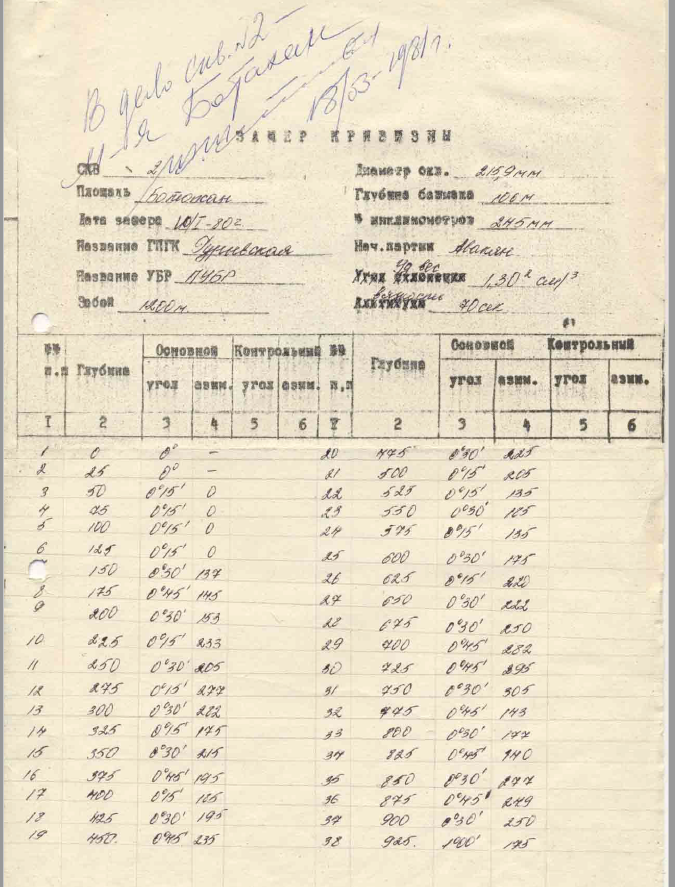 В дело скв. №2 –
18/03-1981г.
ЗАМЕР КРИВИЗНЫ
СКВ 2
Диаметр скв. 215,9мм
Площадь Ботуокан
Глубина башмака 106м
Дата замера 10/I-80г
№ инклинометров 245мм
Название ГПГК
Нач.партии Авакян
Название УБР ПУБР
Уд вес 1,30² см/³
Забой 1200м.
вязкость 70сек
№№ п.п Глубина Основной Контрольный №№ п.п Глубина Основной Контрольный
угол азим. угол азим. угол азим. угол азим.
I 2 3 4 5 6 I 2 3 4 5 6
1 0 0° – 20 475 0°30' 225
2 25 0° – 21 500 0°15' 205
3 50 0°15' 0 22 525 0°15' 135
4 75 0°15' 0 23 550 0°30' 105
5 100 0°15' 0 24 575 0°15' 135
6 125 0°15' 0 25 600 0°30' 175
150 0°30' 137 26 625 0°15' 220
8 175 0°45' 145 27 650 0°30' 222
9 200 0°30' 153 28 675 0°30' 250
10 225 0°15' 233 29 700 0°45' 282
11 250 0°30' 205 30 725 0°45' 295
12 275 0°15' 277 31 750 0°30' 305
13 300 0°30' 282 32 775 0°45' 143
14 325 0°15' 175 33 800 0°30' 177
15 350 0°30' 215 34 825 0°45' 140
16 375 0°45' 195 35 850 0°30' 277
17 400 0°15' 165 36 875 0°45' 279
18 425 0°30' 195 37 900 0°30' 250
19 450. 0°45' 235 38 925. 1°00' 175